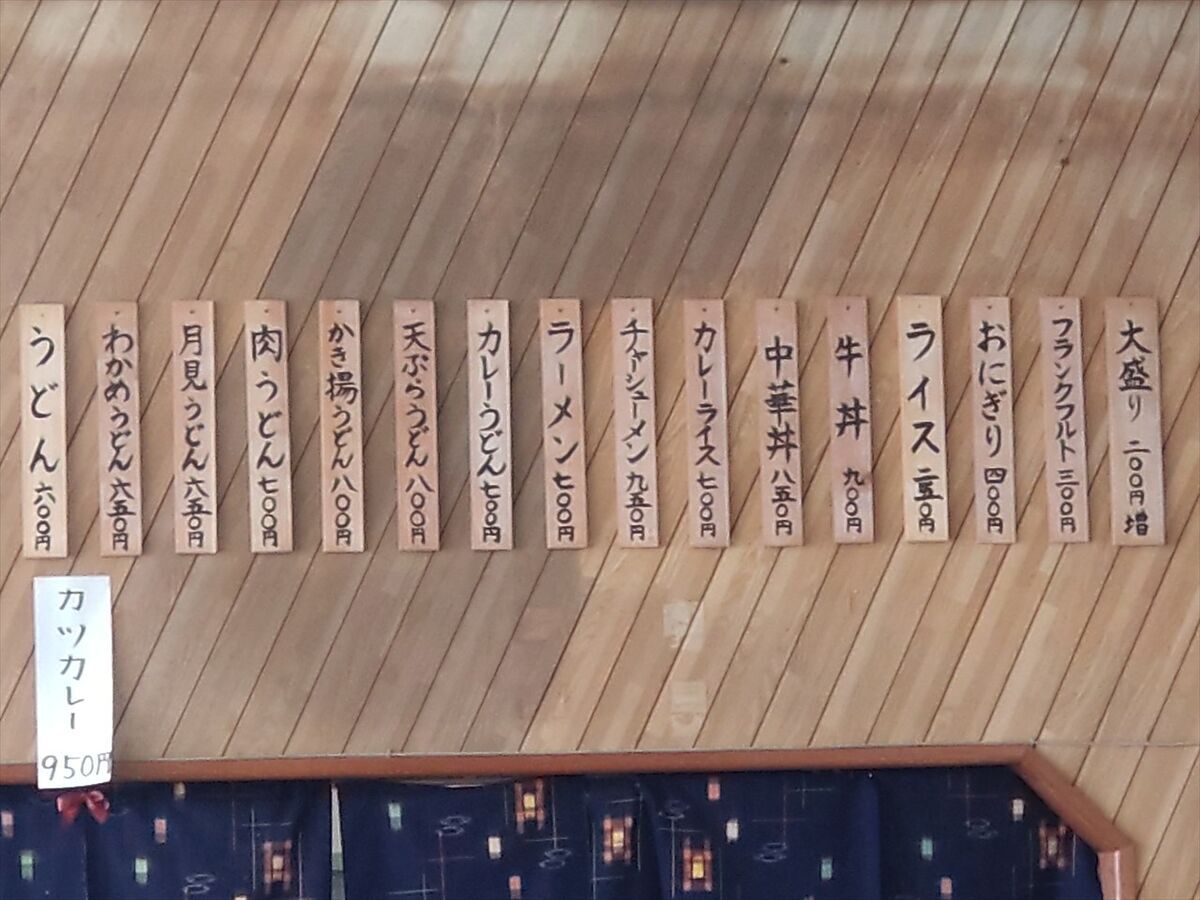 うどん 六〇〇円
わかめうどん 六五〇円
月見うどん 六五〇円
肉うどん 七〇〇円
かき揚うどん 八〇〇円
天ぷらうどん 八〇〇円
カレーうどん 七〇〇円
ラーメン 七〇〇円
チャーシューメン 九五〇円
カレーライス 七〇〇円
中華丼 八五〇円
牛丼 九〇〇円
ライス 二五〇円
おにぎり 四〇〇円
フランクフルト 三〇〇円
大盛り 二〇〇円増
カツカレー
950円